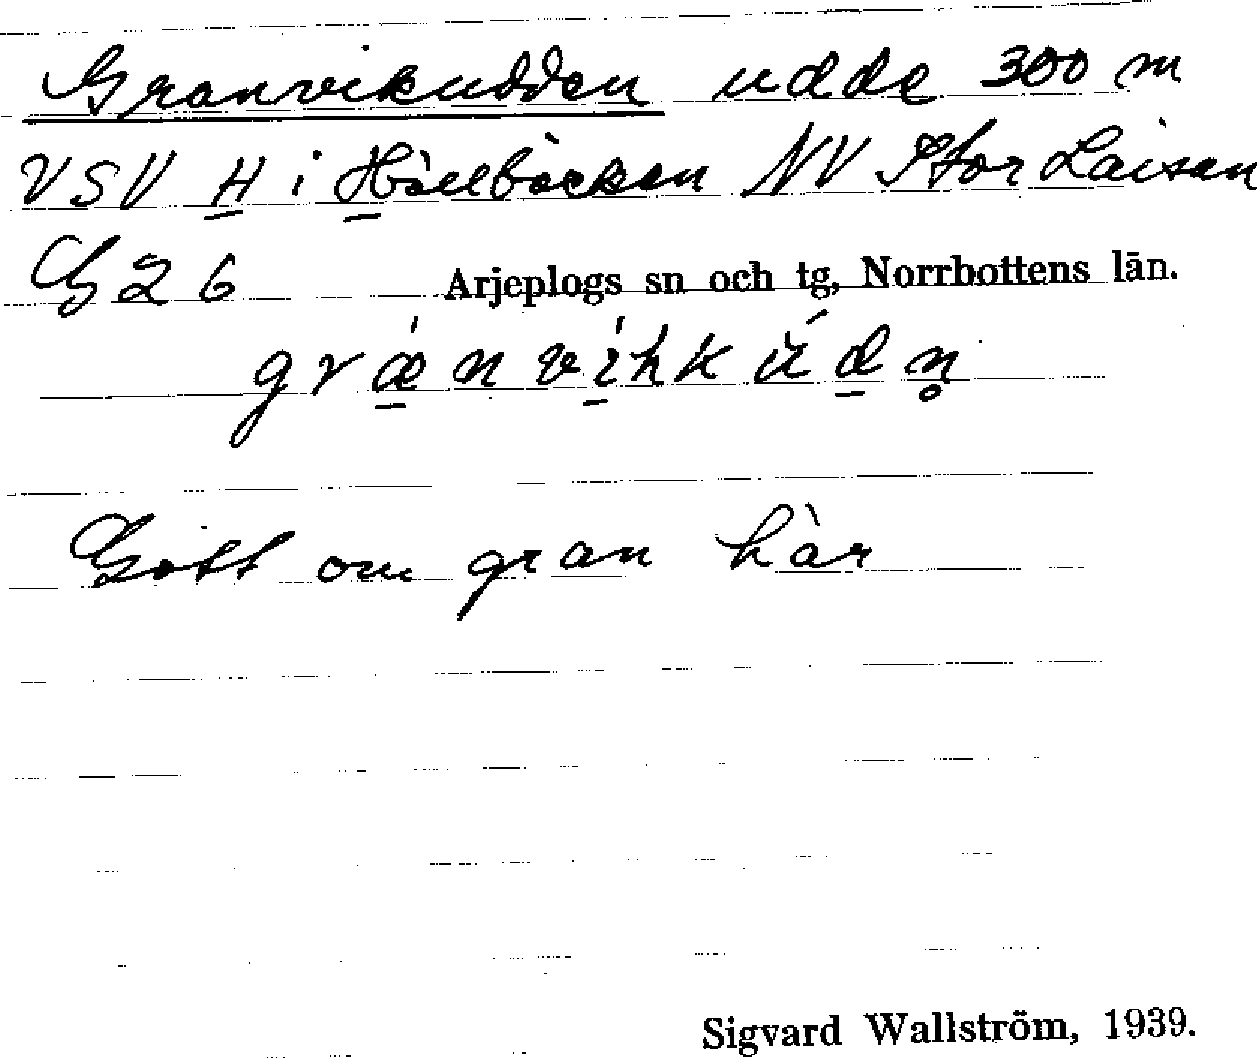 Granvikudden udde 300 m
VSV H i Hällbäcken NV Stor Laisan
G 2 6 Arjeplogs sn och tg, Norrbottens län.
grǽnvíhkúdn̥
Gott om gran här
Sigvard Wallström, 1939.